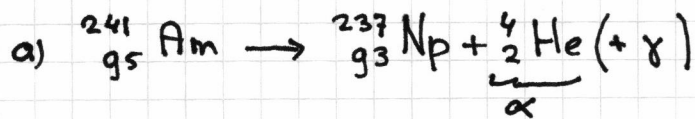 a) ²⁴¹₉₅Am → ²³⁷₉₃Np + ⁴₂He (+ γ)
α